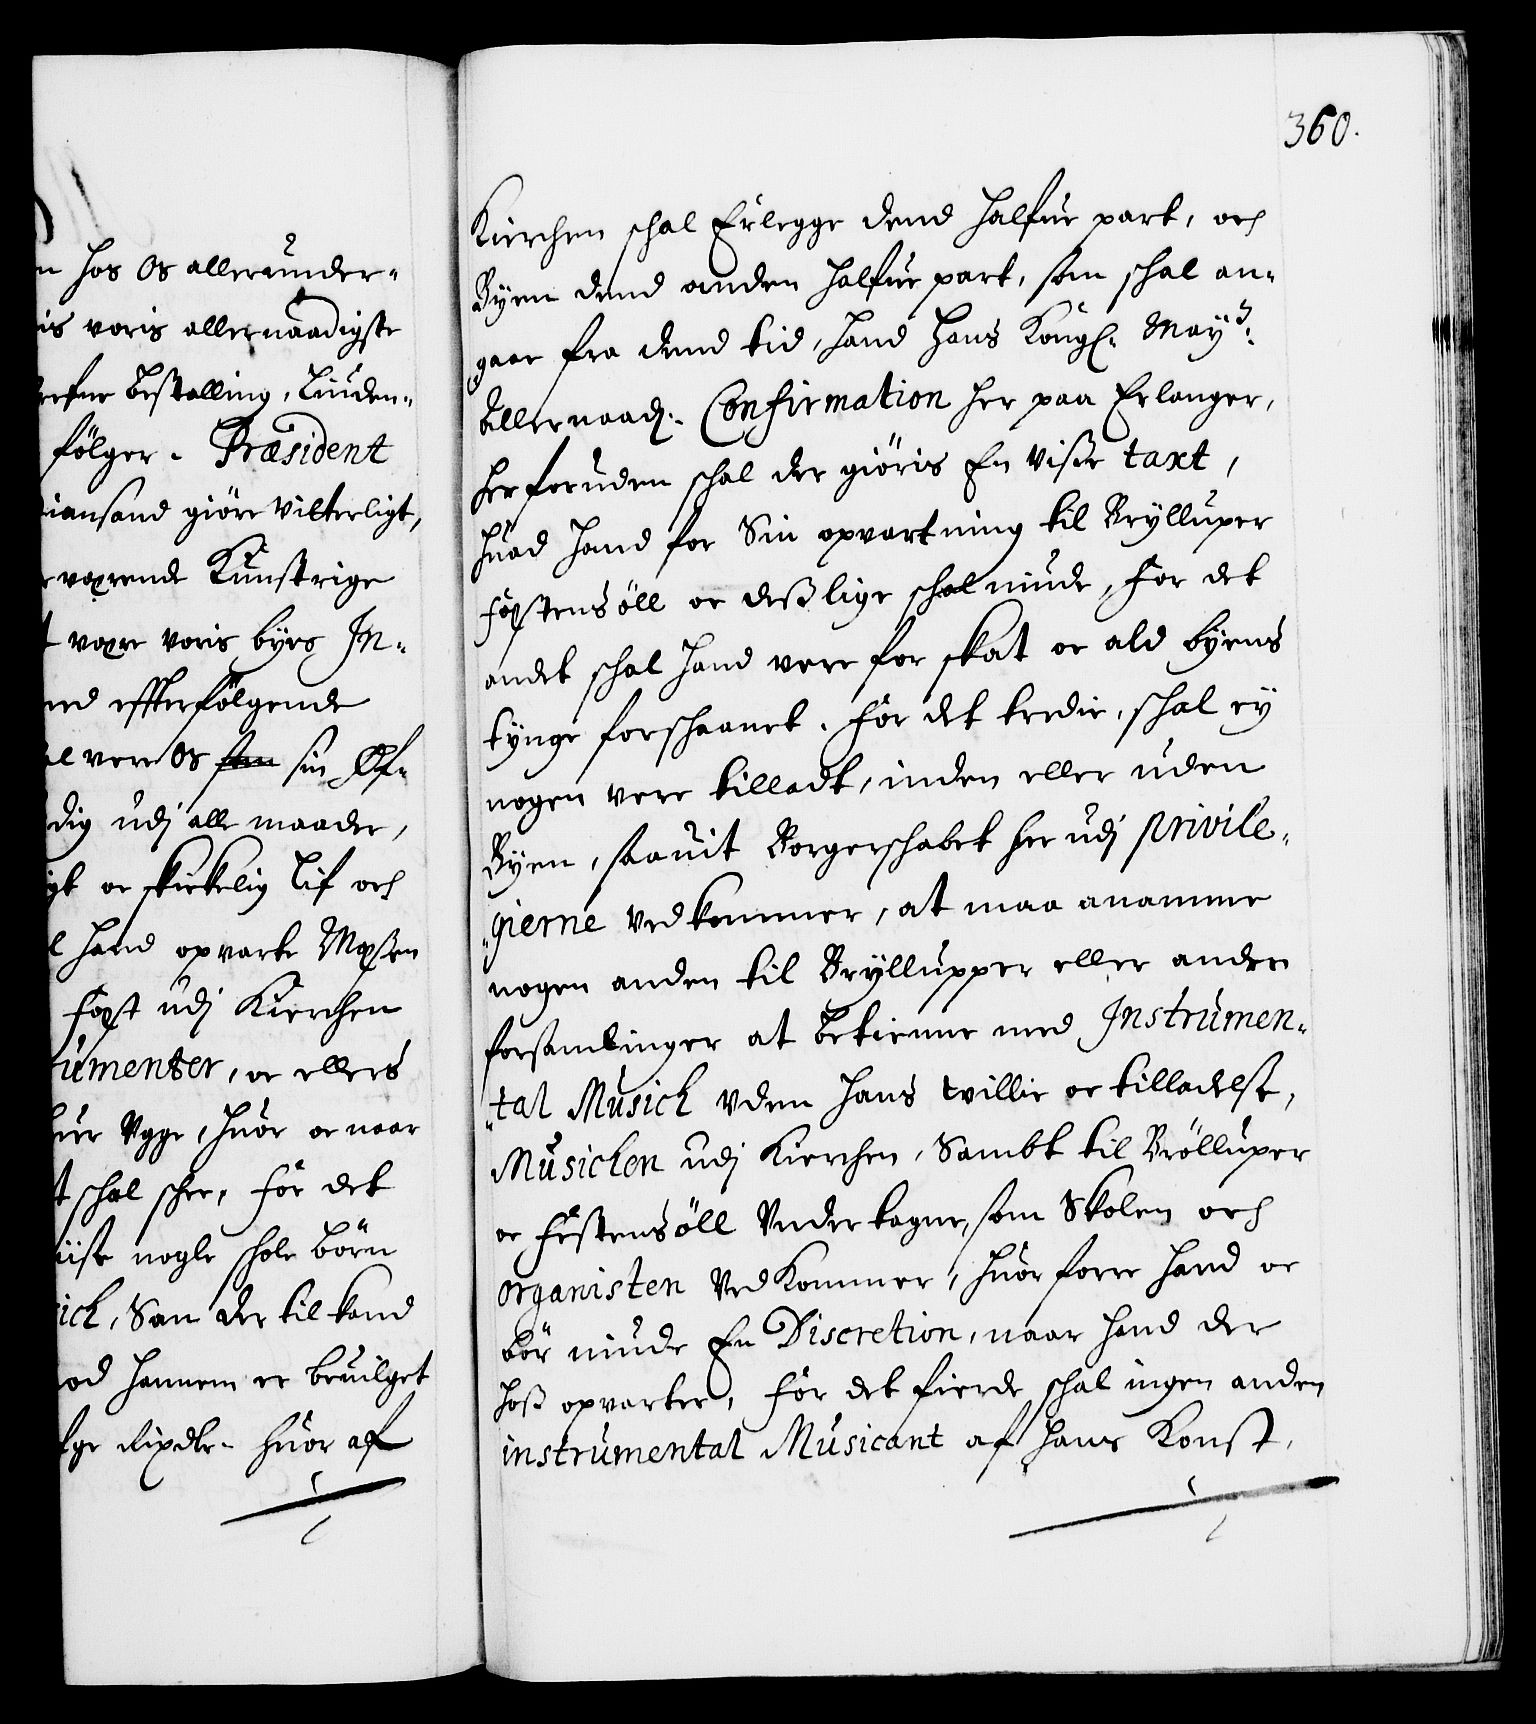 n hos Os allerunder-
is voris allernaadigste
refne bestalling, Liuden-
følger. Præsident
iansand giöre vitterligt,
værende Kunstrige
t være voris byes In-
med effterfölgende
al vere Os sin Øf-
dig udj alle maader,
gt oc skickelig Lif och
l hand opvarte Messen
fest udj Kierchen
umenter, oc ellers
huer Ugge, huor oc naar
t schal schee, för det
uiise nogle schole börn
ick, Saa der til hand
mod hannem er beuilget
tge Rixdlr. huor af
360.
Kierchen schal Erlegge dend halfue part, och
Byen dend anden halfue part, som schal an-
gaar fra dend tid, hand Hans Kongl: Mayts:
Allernaad: Confirmation her paa Erlanger,
her foruden schal der giöris En visse taxt,
huad hand for Sin opvartning til Brylluper
festensöll oc desslige schal niude, for det
andet schal hand vere for skat oc ald byens
tynge forschaanet. för det tredie, schal ey
nogen vere tilladt, inden eller uden
Byen, saauit Borgerschabet her udj privile-
gierne vedkommer, at maa anamme
nogen anden til Bryllupper eller anden
forsamlinger at betienne med Instrumen-
tal Musick Uden hans willie oc tilladelse,
Musicken udj Kierchen, Sambt til Bröllupper
oc festensöll Undertagne, som Skolen och
organisten vedkommer, huor forre hand oc
bör niude En Discretion, naar hand der
hoss opvarter, för det fierde schal ingen anden
instrumental Musicant af hans Konst,